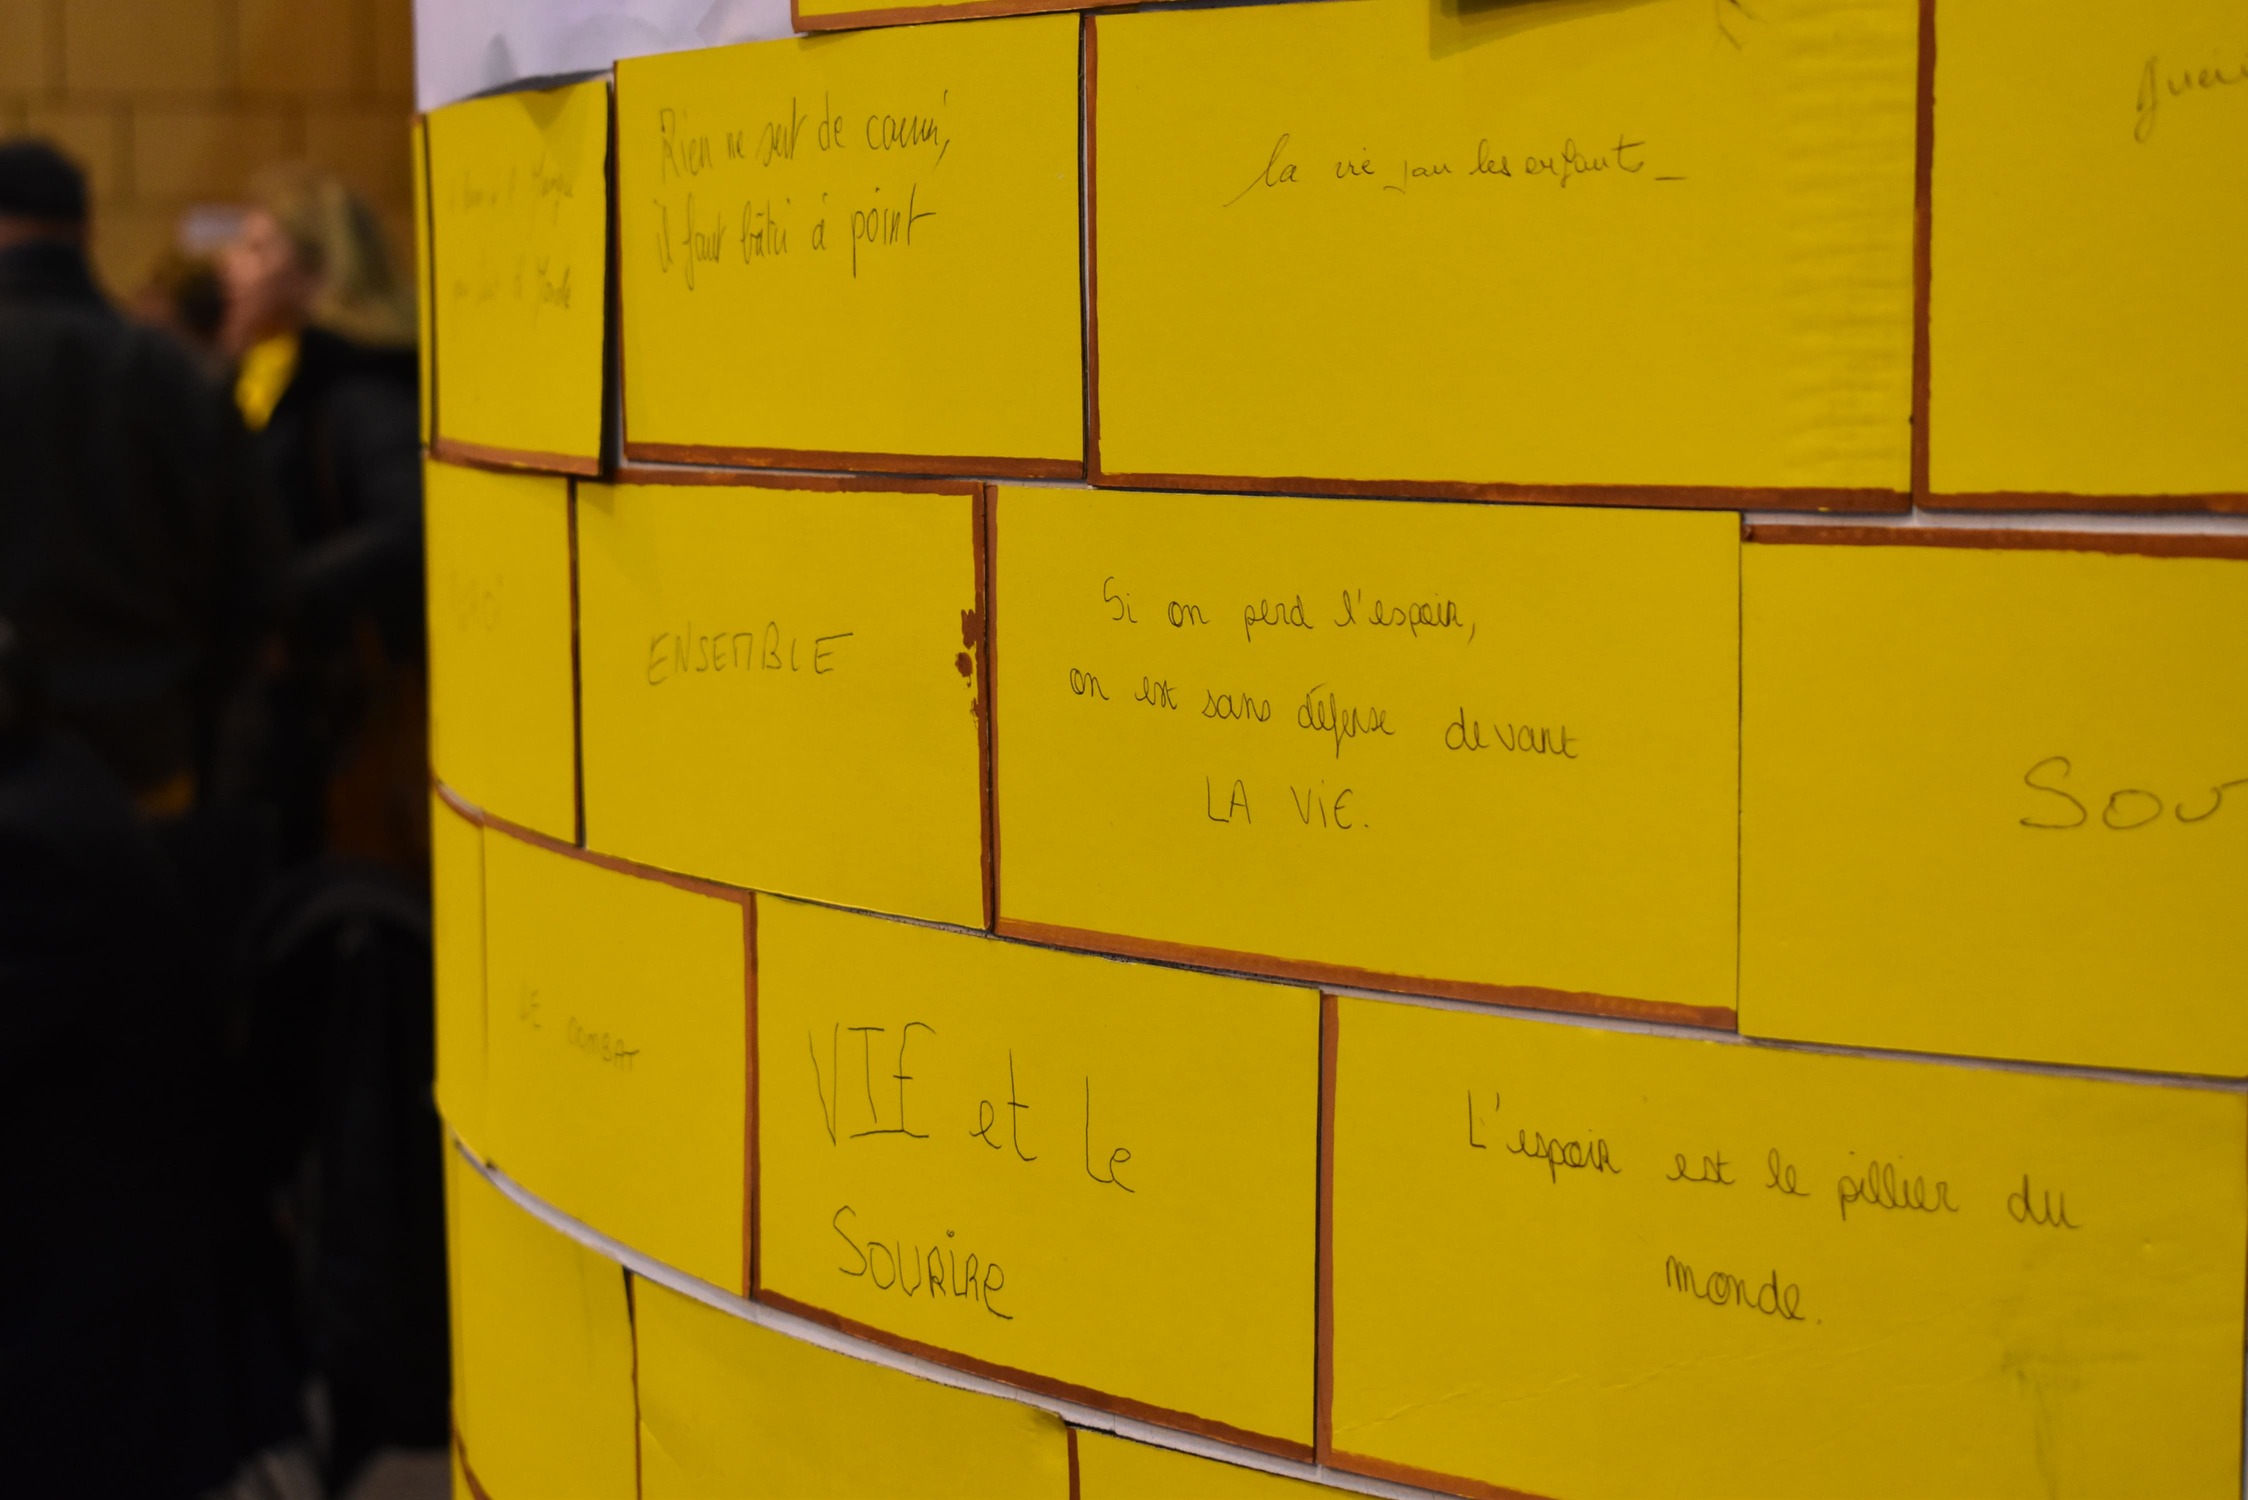 Rien ne sert de courir,
il faut bâtir à point
la vie par les enfants_
ENSEMBLE
Si on perd l'espoir,
on est sans défense devant
LA ViE.
SOU
LE COMBAT
VIE et Le
SOURIRe
L'espoir est le pillier du
monde.